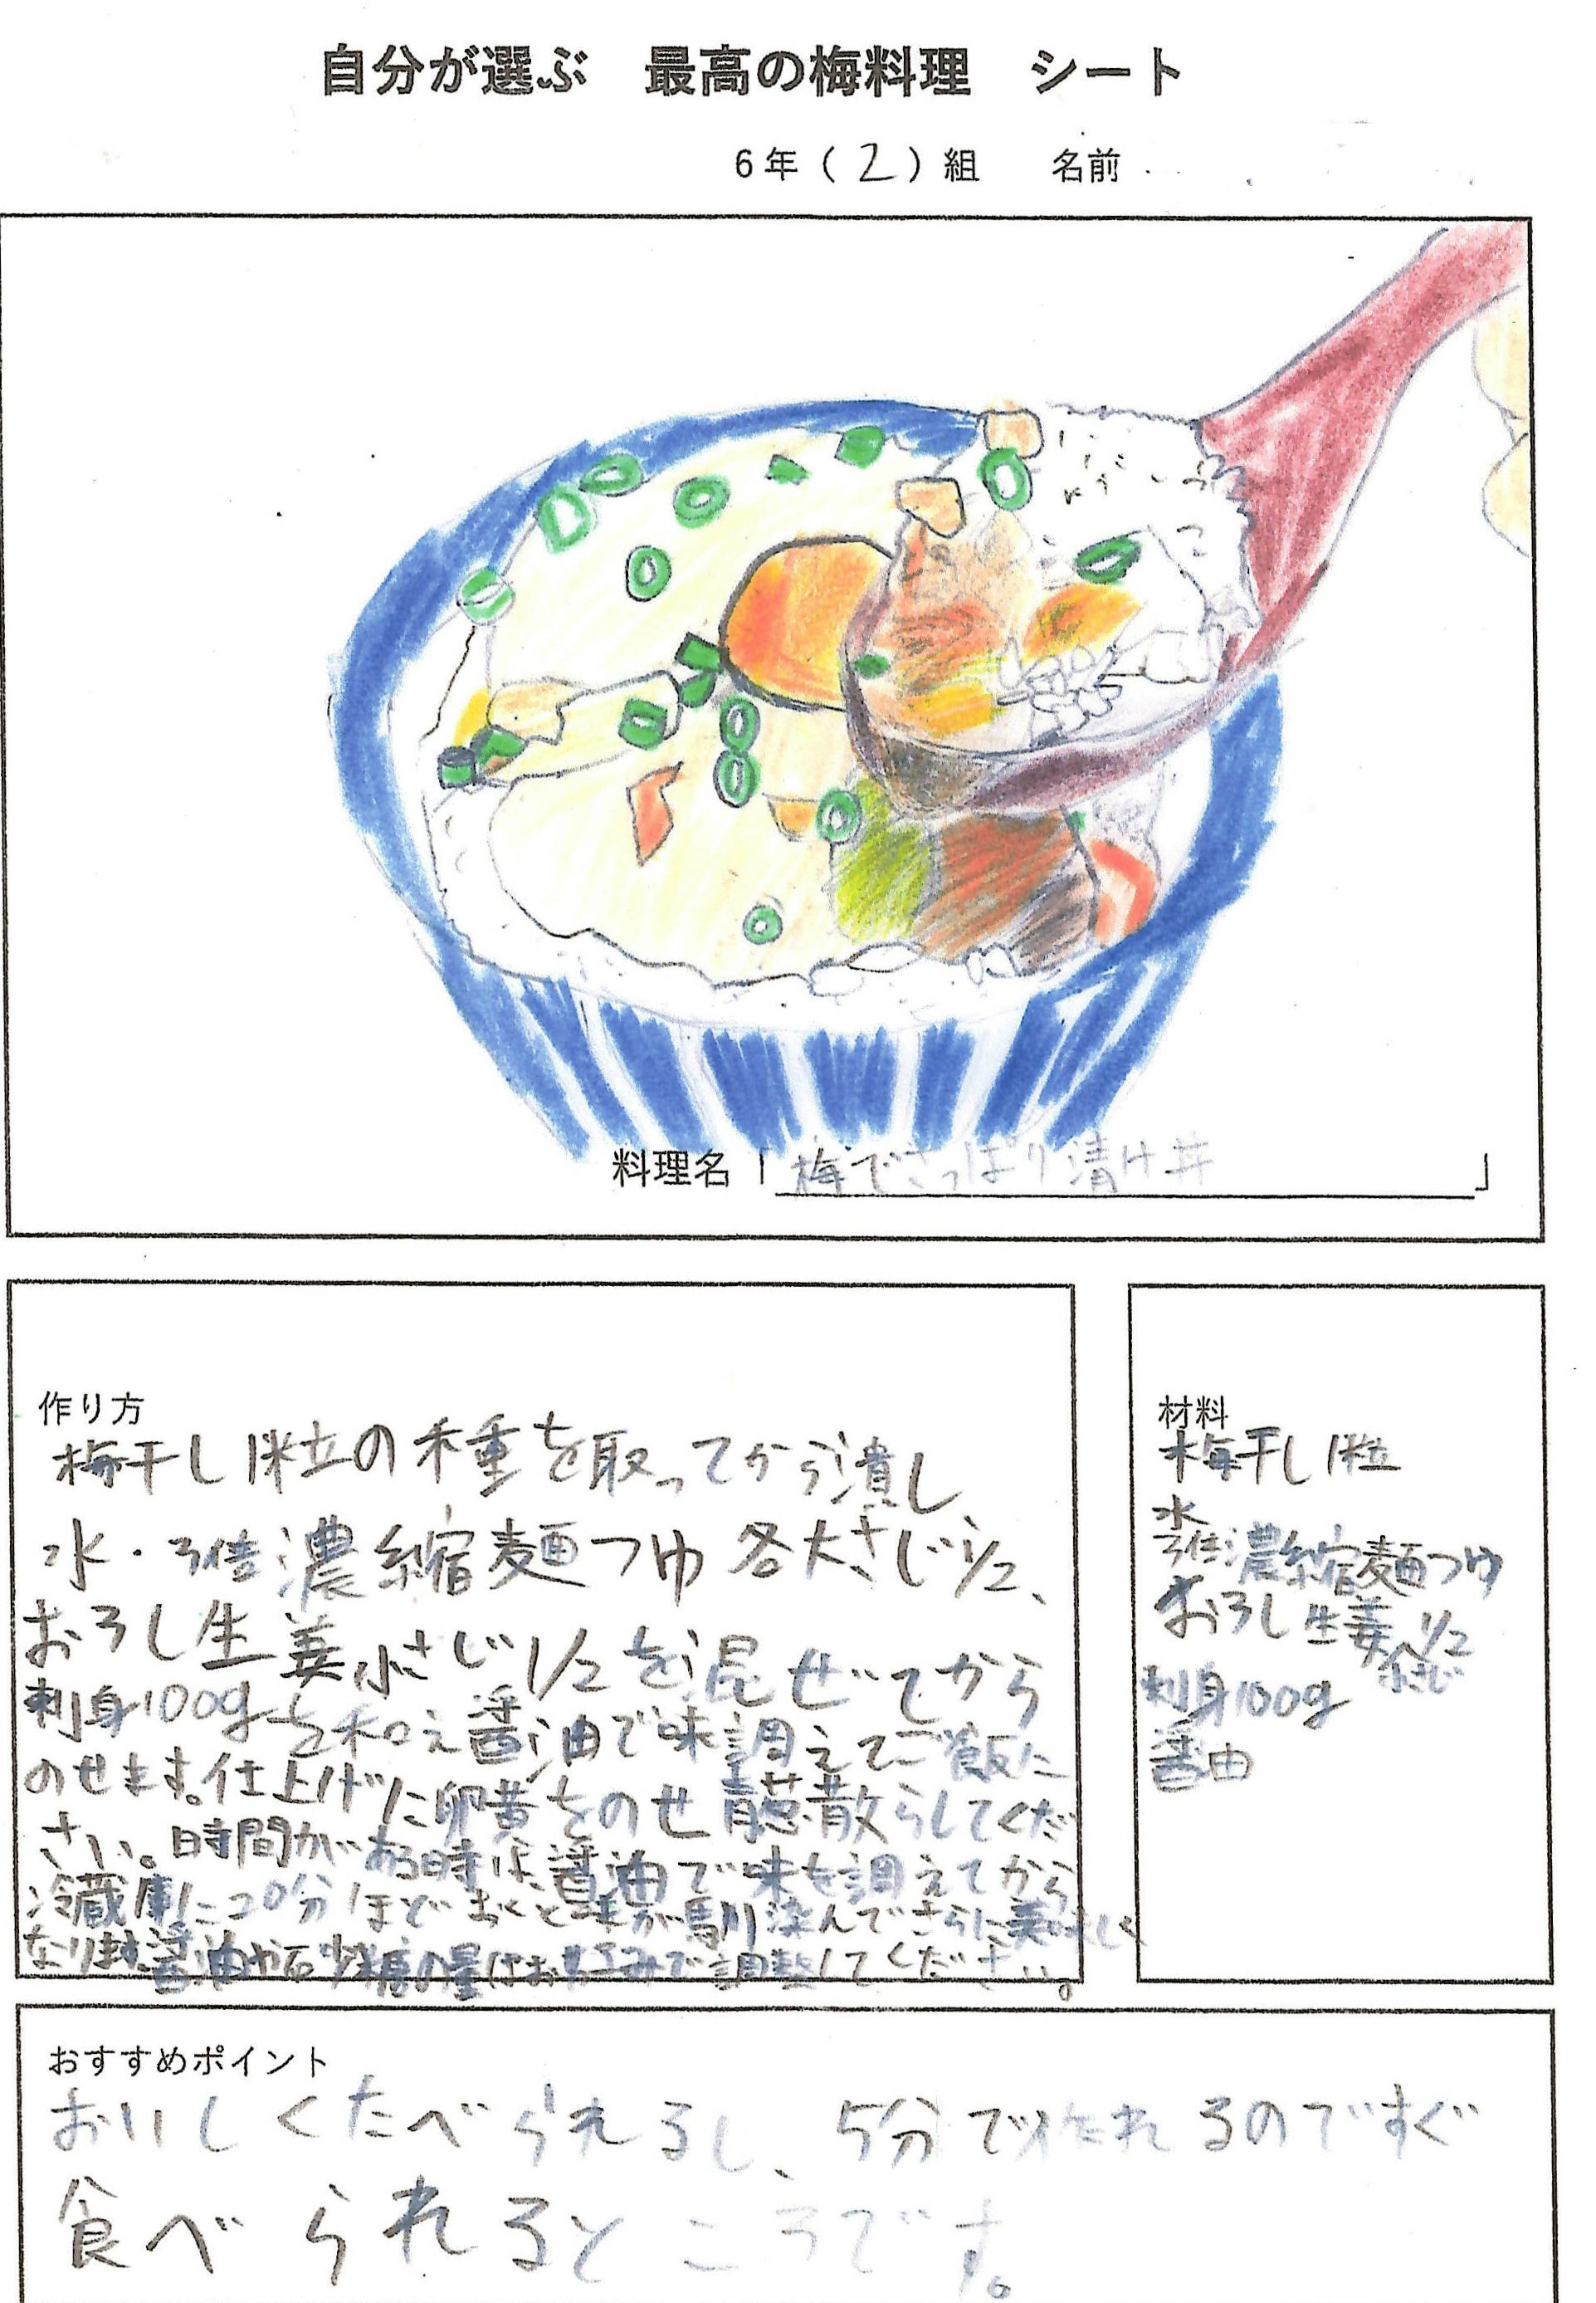 自分が選ぶ　最高の梅料理　シート
6年（2）組　　名前
料理名「梅でさっぱり漬け丼」
作り方
梅干し1粒の種を取ってから潰し
水・3倍濃縮麺つゆ各大さじ1/2、
おろし生姜小さじ1/2を混ぜてから
刺身100gを和え醤油で味調えてご飯に
のせます。仕上げに卵黄をのせ青葱散らしてくだ
さい。時間がある時は、醤油で味を調えてから
冷蔵庫に20分ほどおくと味が馴染んでさらに美味しく
なります。醤油や砂糖の量はお好みで調整してください。
材料
梅干し1粒
水
3倍濃縮麺つゆ
おろし生姜小さじ1/2
刺身100g
醤油
おすすめポイント
おいしくたべられるし、5分で作れるのですぐ
食べられるところです。